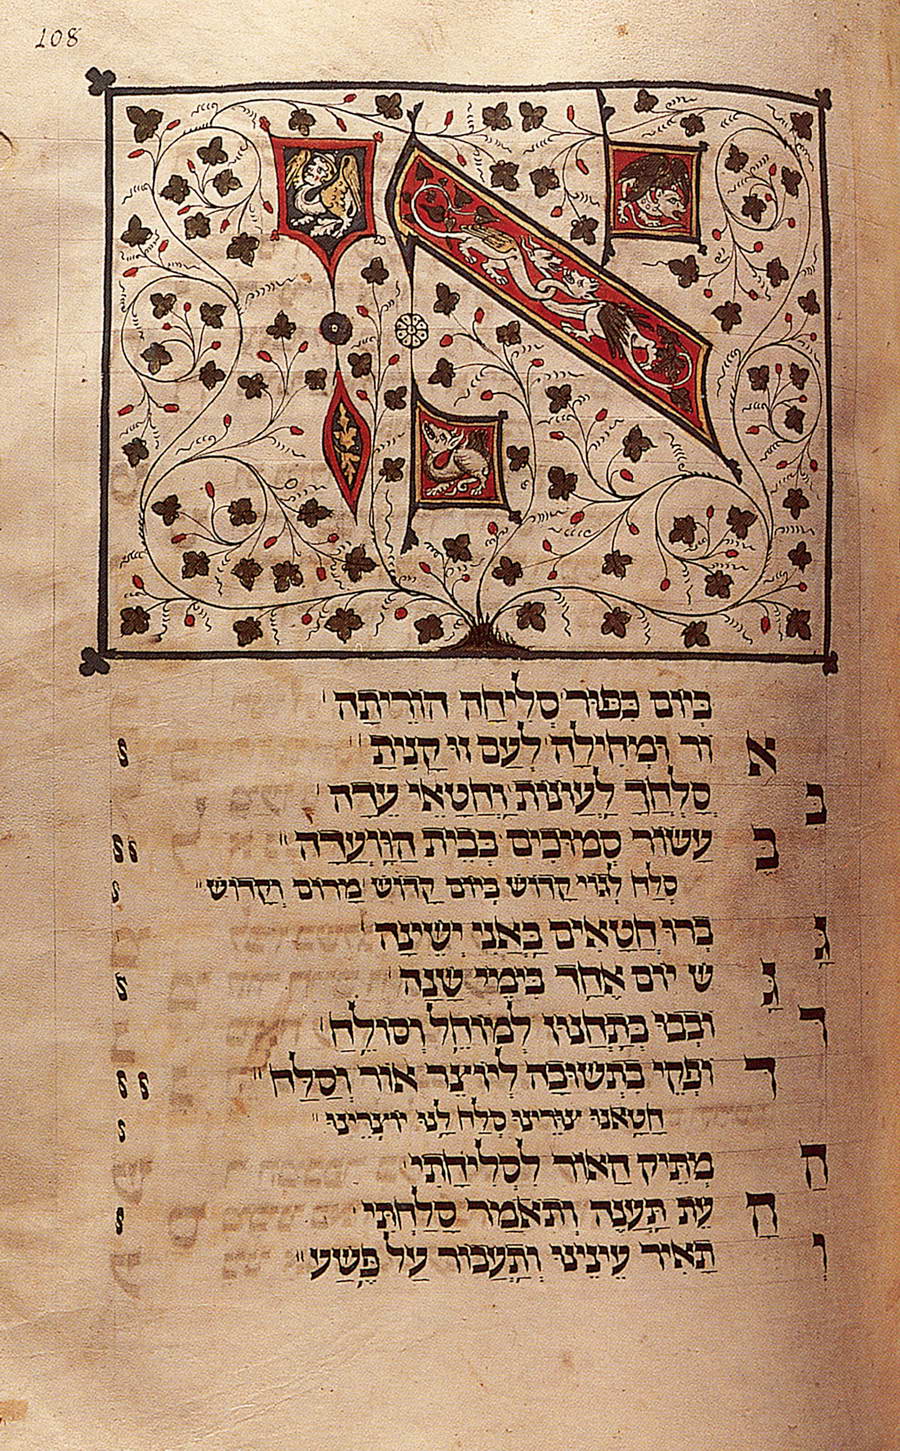 108
אז
בְּיוֹם כִּפּוּר סְלִיחָה הוֹרֵיתָה
אוֹר וּמְחִילָה לְעַם זוּ קָנִיתָ
בְּסַלְחָךְ לַעֲוֹנוֹת וַחֲטָאֵי עֵדָה
בֶּעָשׂוֹר סְמוּכִים בְּבֵית הַוְּועָדָה
סְלַח לְגוֹי קָדוֹשׁ בְּיוֹם קָדוֹשׁ מָרוֹם וְקָדוֹשׁ
גָּבְרוּ חֲטָאִים בַּאֲנִי יְשֵׁינָה
גַּשׁ יוֹם אֶחָד בִּימֵי שָׁנָה
דּוֹבְבֵי בְּתַחֲנוּן לְמוֹחֵל וְסוֹלֵחַ
דּוֹפְקֵי בִּתְשׁוּבָה לְיוֹצֵר אוֹר וְסַלָּח
חָטָאנוּ צוּרֵינוּ סְלַח לָנוּ יוֹצְרֵינוּ
הַמְתִּיק הָאוֹר לִסְלִיחָתִי
הָעֵת תַּעֲנֶה וְתֹאמַר סָלַחְתִּי
וְתָאִיר עֵינֵינוּ וְתַעֲבוֹר עַל פֶּשַׁע